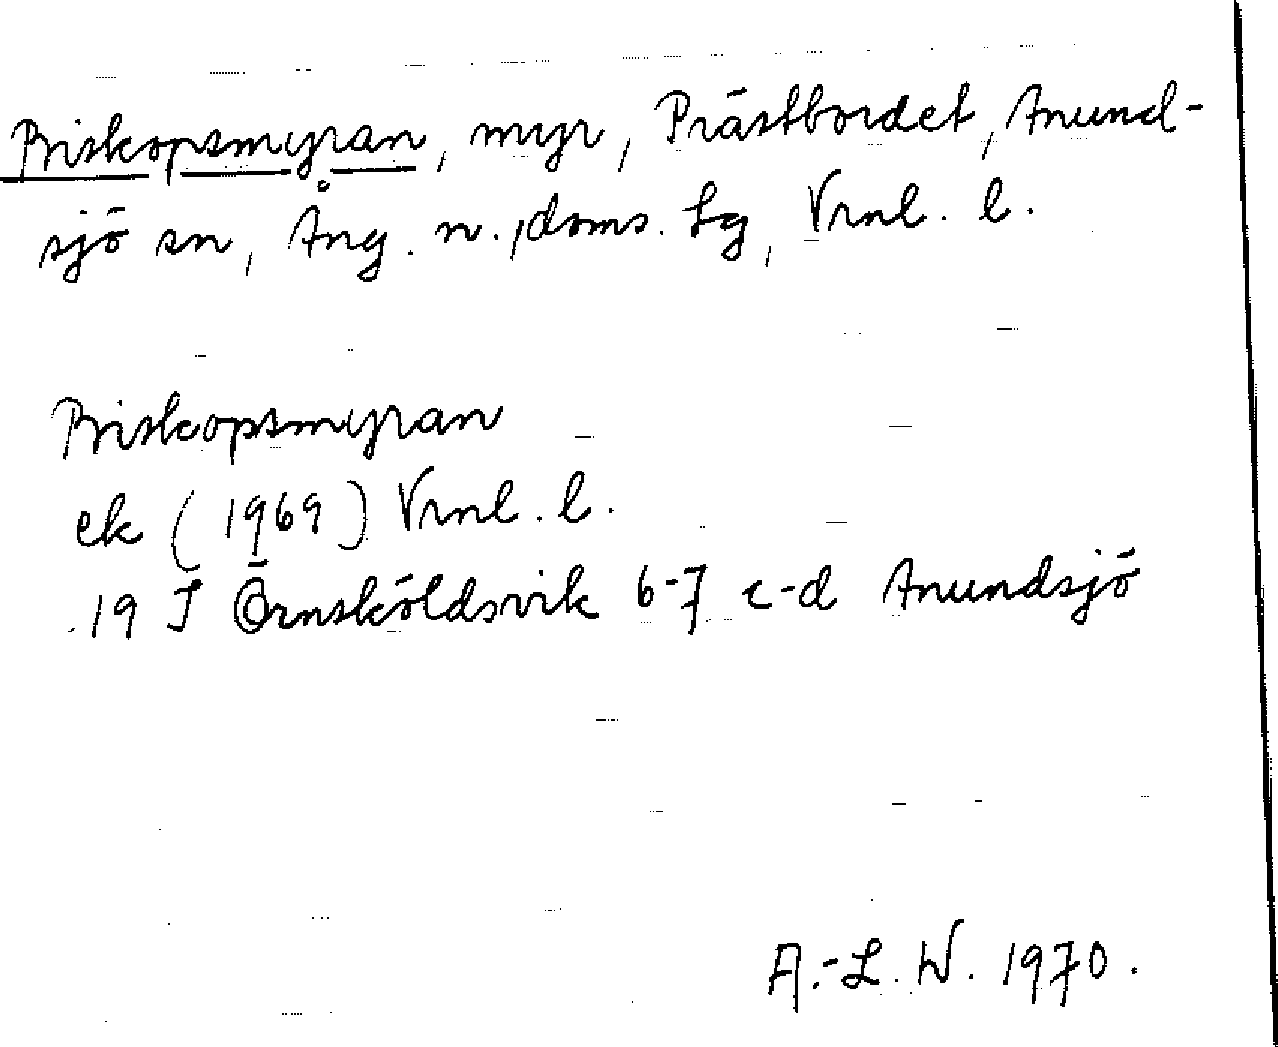 Biskopsmyran, myr, Prästbordet, Anund-
sjö sn, Ång. n. doms. Lg, Vrnl. l.
Biskopsmyran
ek (1969) Vrnl. l.
19 J Örnsköldsvik 6-7 c-d Anundsjö
A.-L. W. 1970.